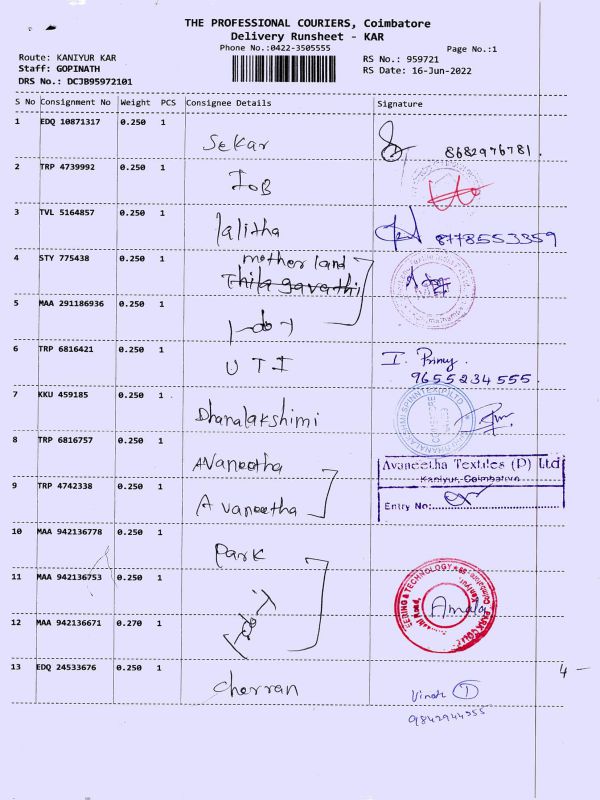 THE PROFESSIONAL COURIERS, Coimbatore
Delivery Runsheet - KAR
Phone No.:0422-3505555
Page No.:1
Route: KANIYUR KAR
RS No.: 959721
Staff: GOPINATH
RS Date: 16-Jun-2022
DRS No.: DCJB95972101
S No Consignment No Weight PCS Consignee Details Signature
1 EDQ 10871317 0.250 1
Sekar 8682976781.
2 TRP 4739992 0.250 1
IOB
3 TVL 5164857 0.250 1
lalitha 8778553359
4 STY 775438 0.250 1
mother land
Thilagavathi
5 MAA 291186936 0.250 1
6 TRP 6816421 0.250 1
UTI
I. Primy.
9655234555.
7 KKU 459185 0.250 1
Dhanalakshimi
8 TRP 6816757 0.250 1
Avaneetha
Avaneetha Textiles (P) Ltd
Kaniyur, Coimbatore
9 TRP 4742338 0.250 1
Avaneetha
Entry No:
10 MAA 942136778 0.250 1
Park
11 MAA 942136753 0.250 1
Amala
12 MAA 942136671 0.270 1
13 EDQ 24533676 0.250 1
Cherran
4 -
Vinoth 1
9842944355